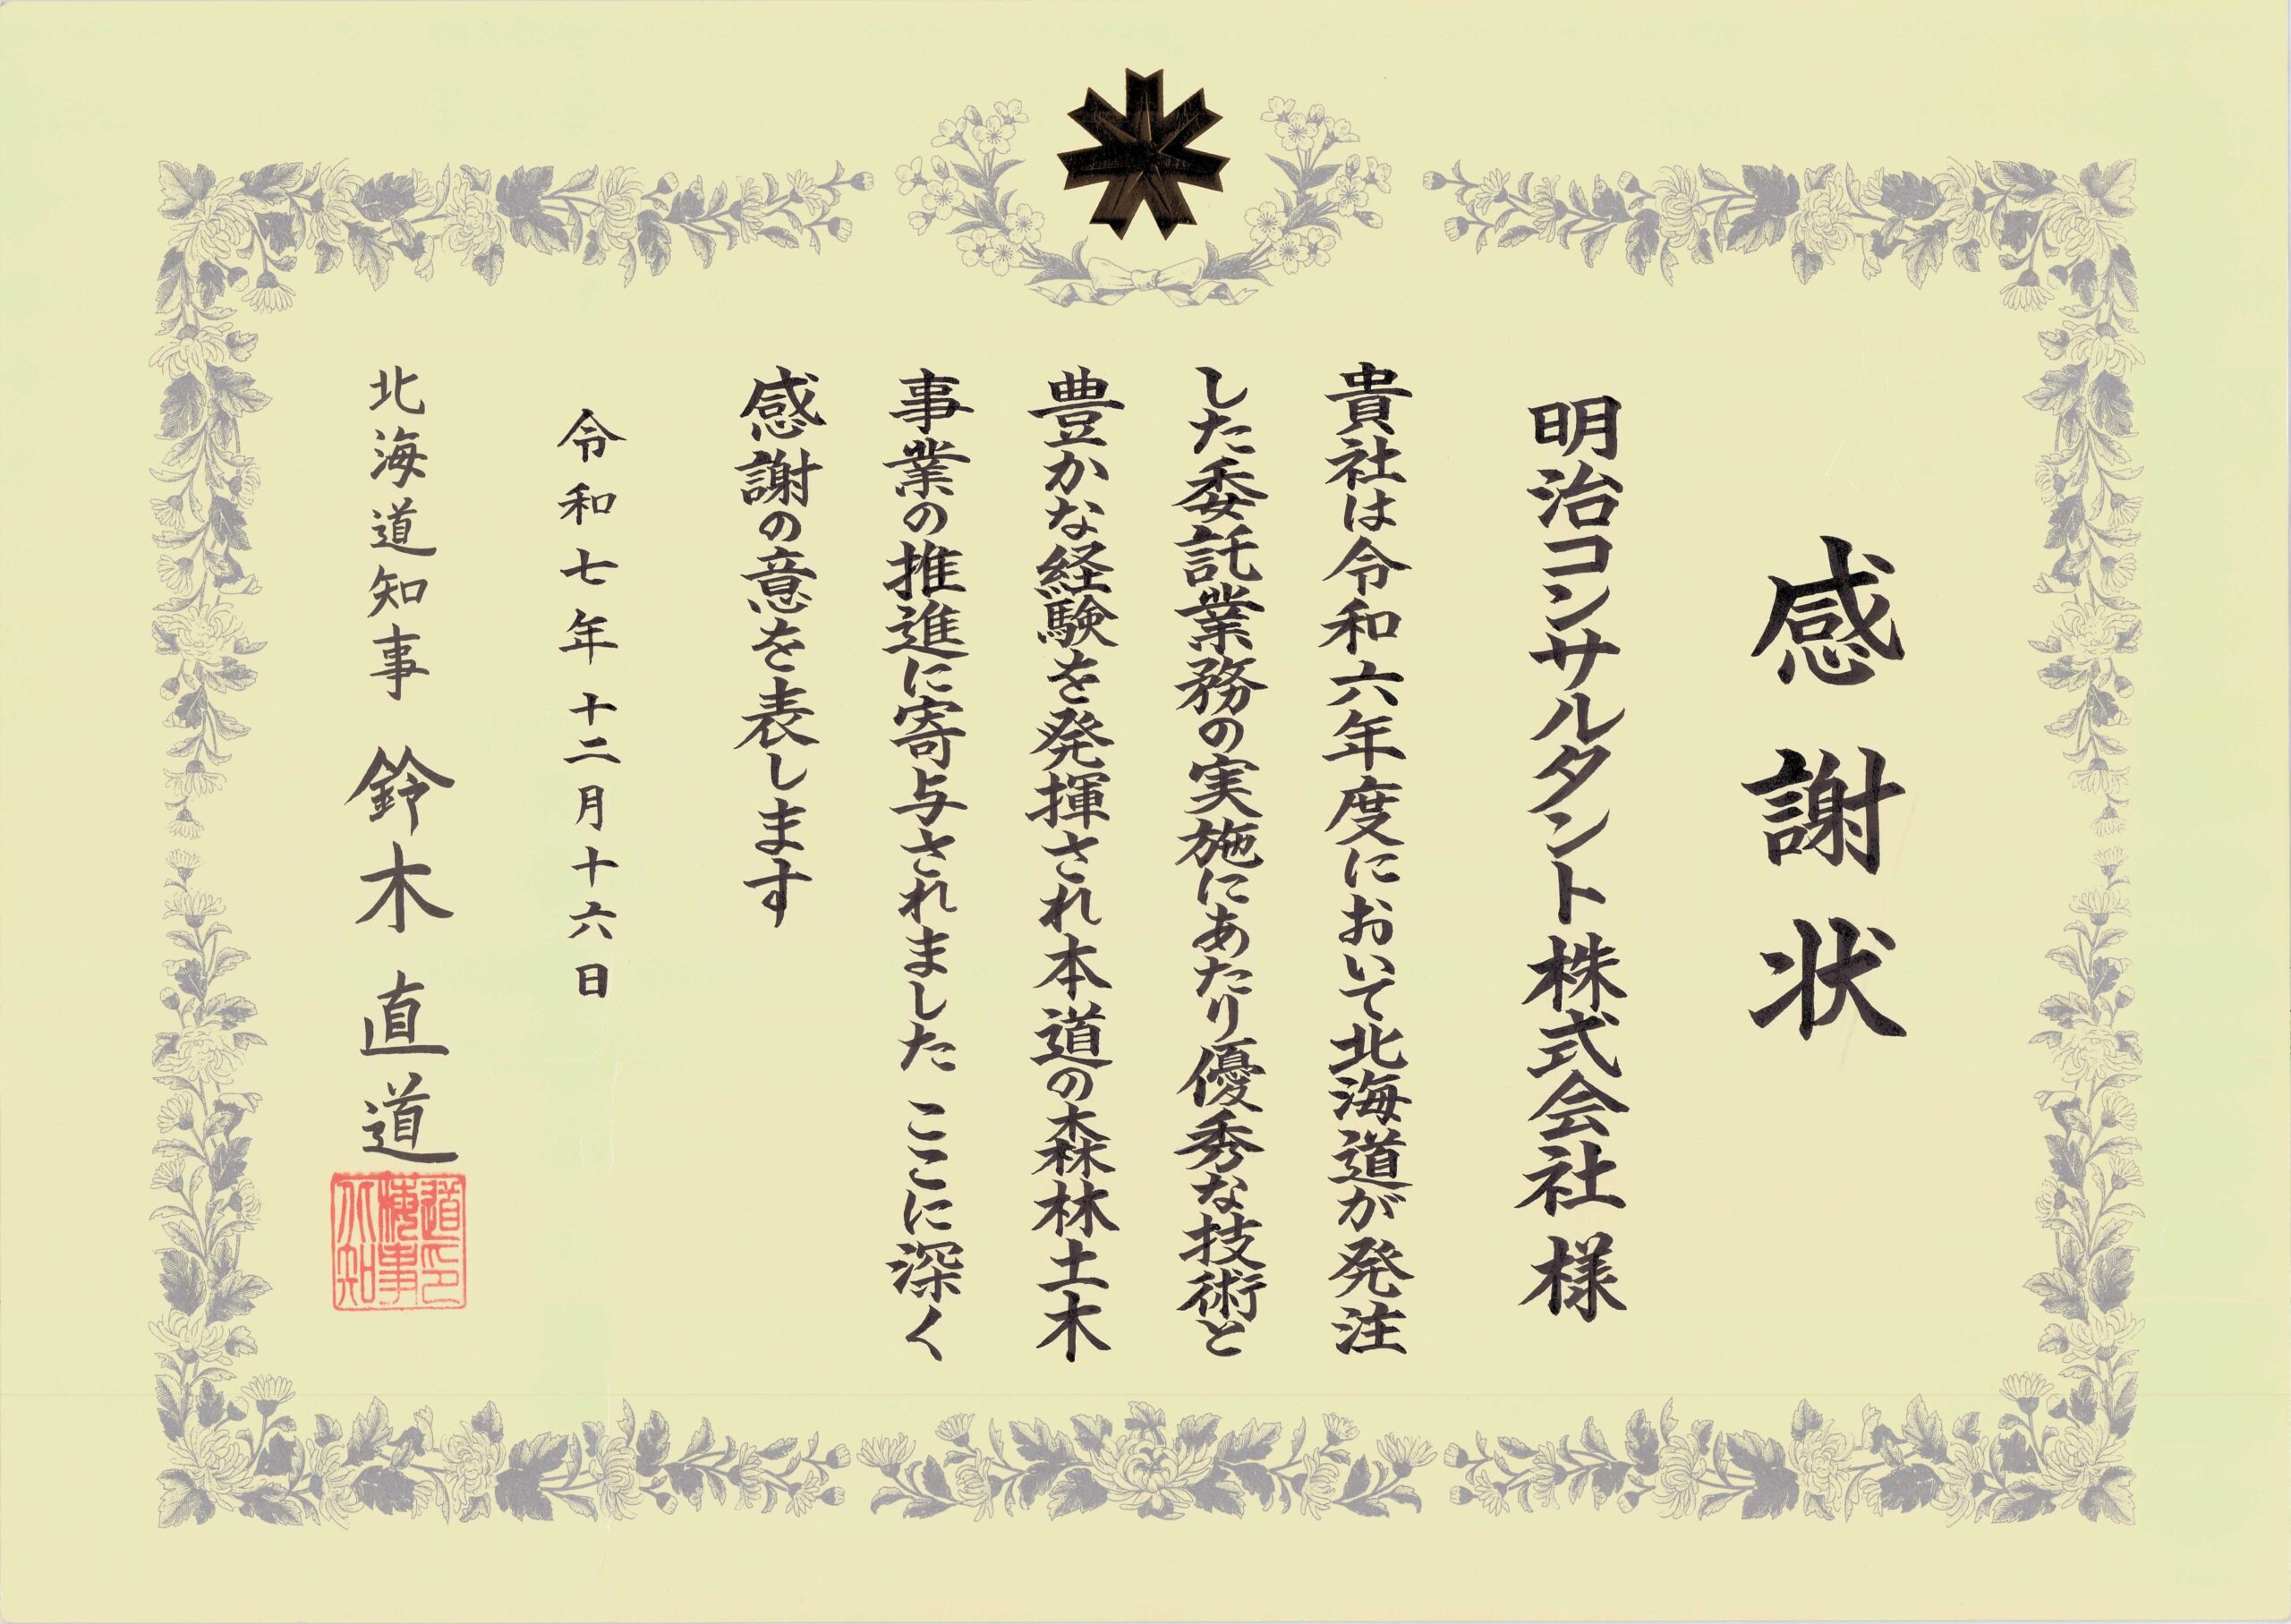 感謝状
明治コンサルタント株式会社 様
貴社は令和六年度において北海道が発注
した委託業務の実施にあたり優秀な技術と
豊かな経験を発揮され本道の森林土木
事業の推進に寄与されました ここに深く
感謝の意を表します
令和七年十二月十六日
北海道知事 鈴木直道
道印
海事
北知